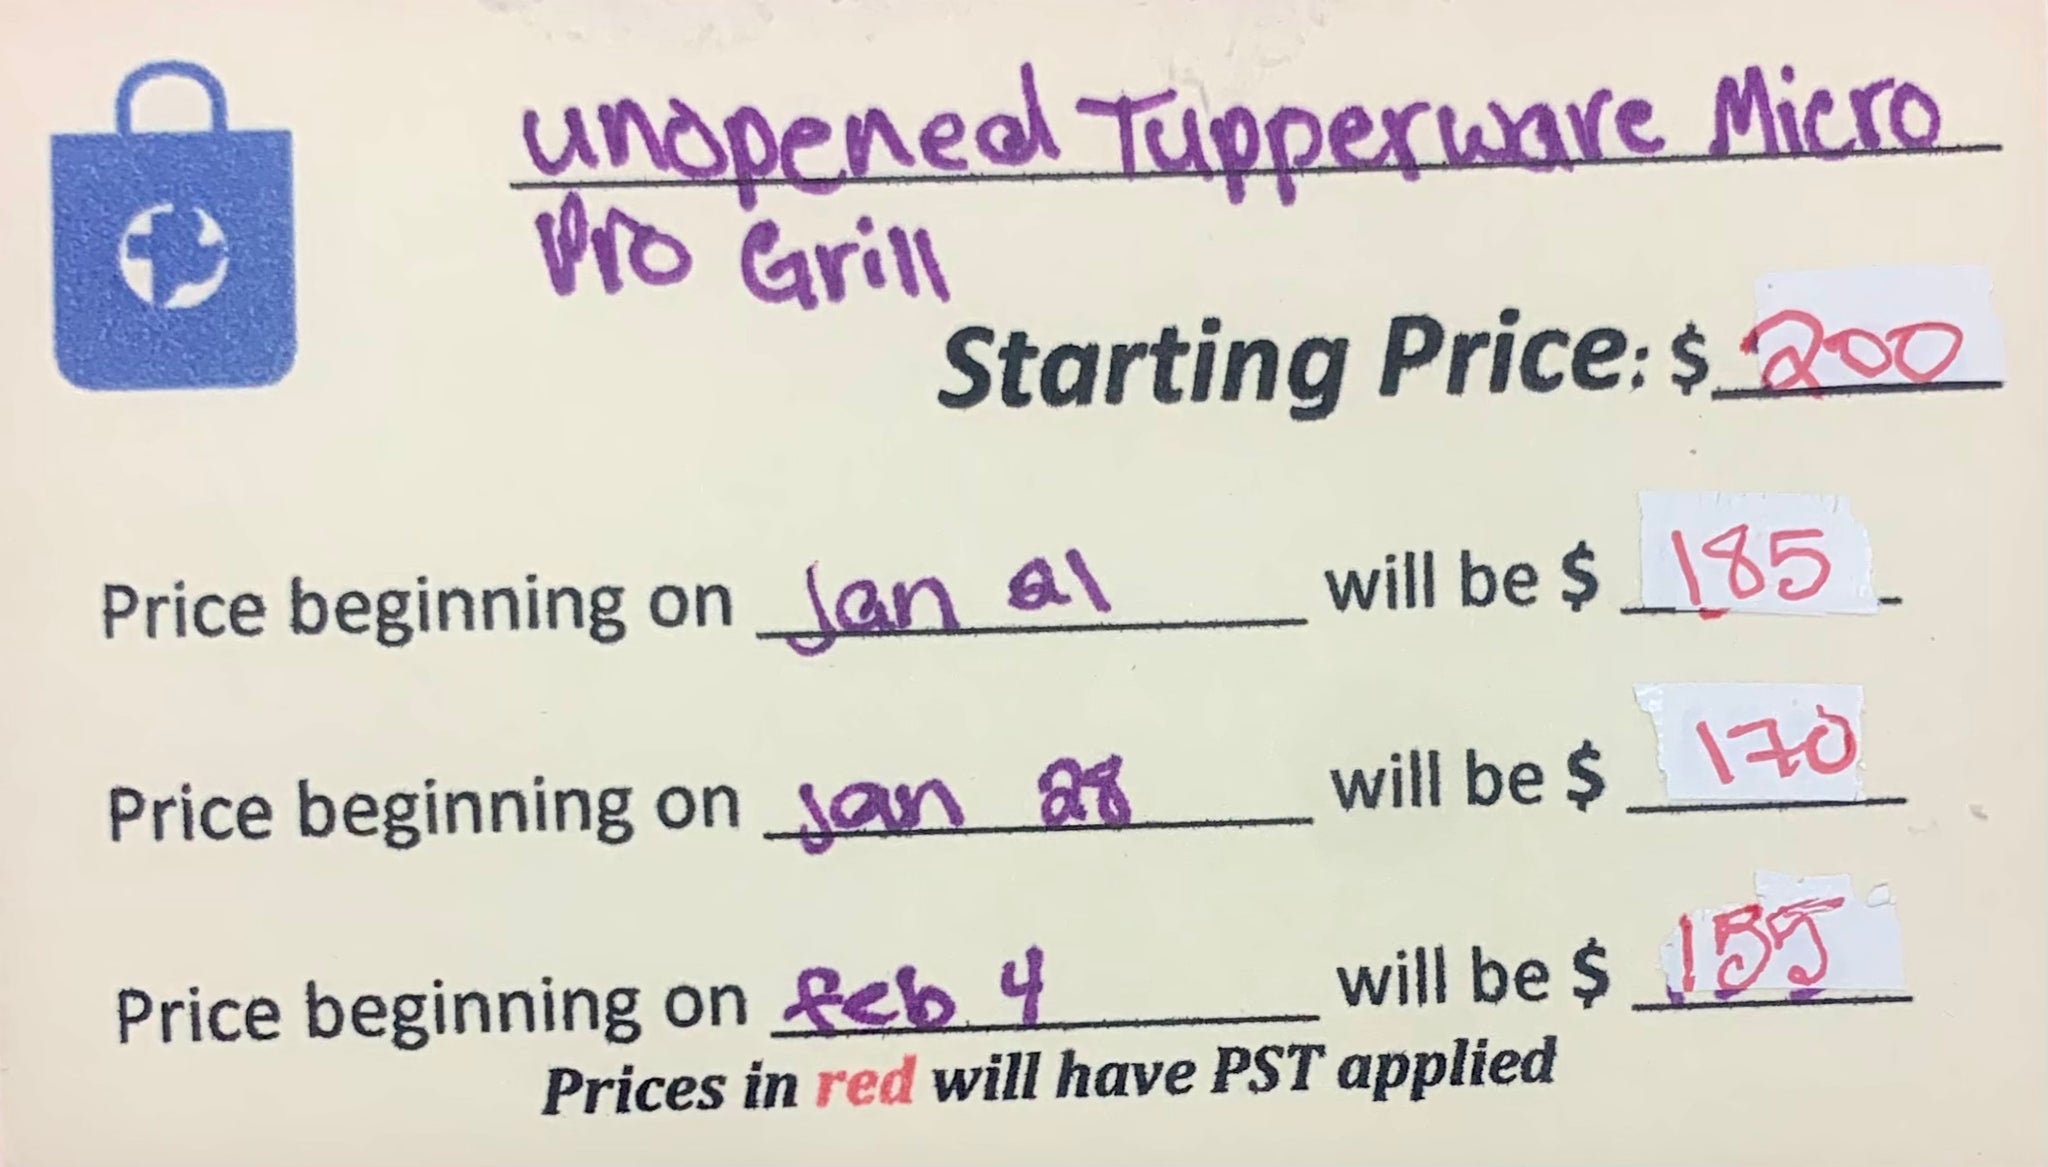 unopened Tupperware Micro
Pro Grill
Starting Price: $ 200
Price beginning on Jan 21 will be $ 185
Price beginning on Jan 28 will be $ 170
Price beginning on feb 4 will be $ 155
Prices in red will have PST applied